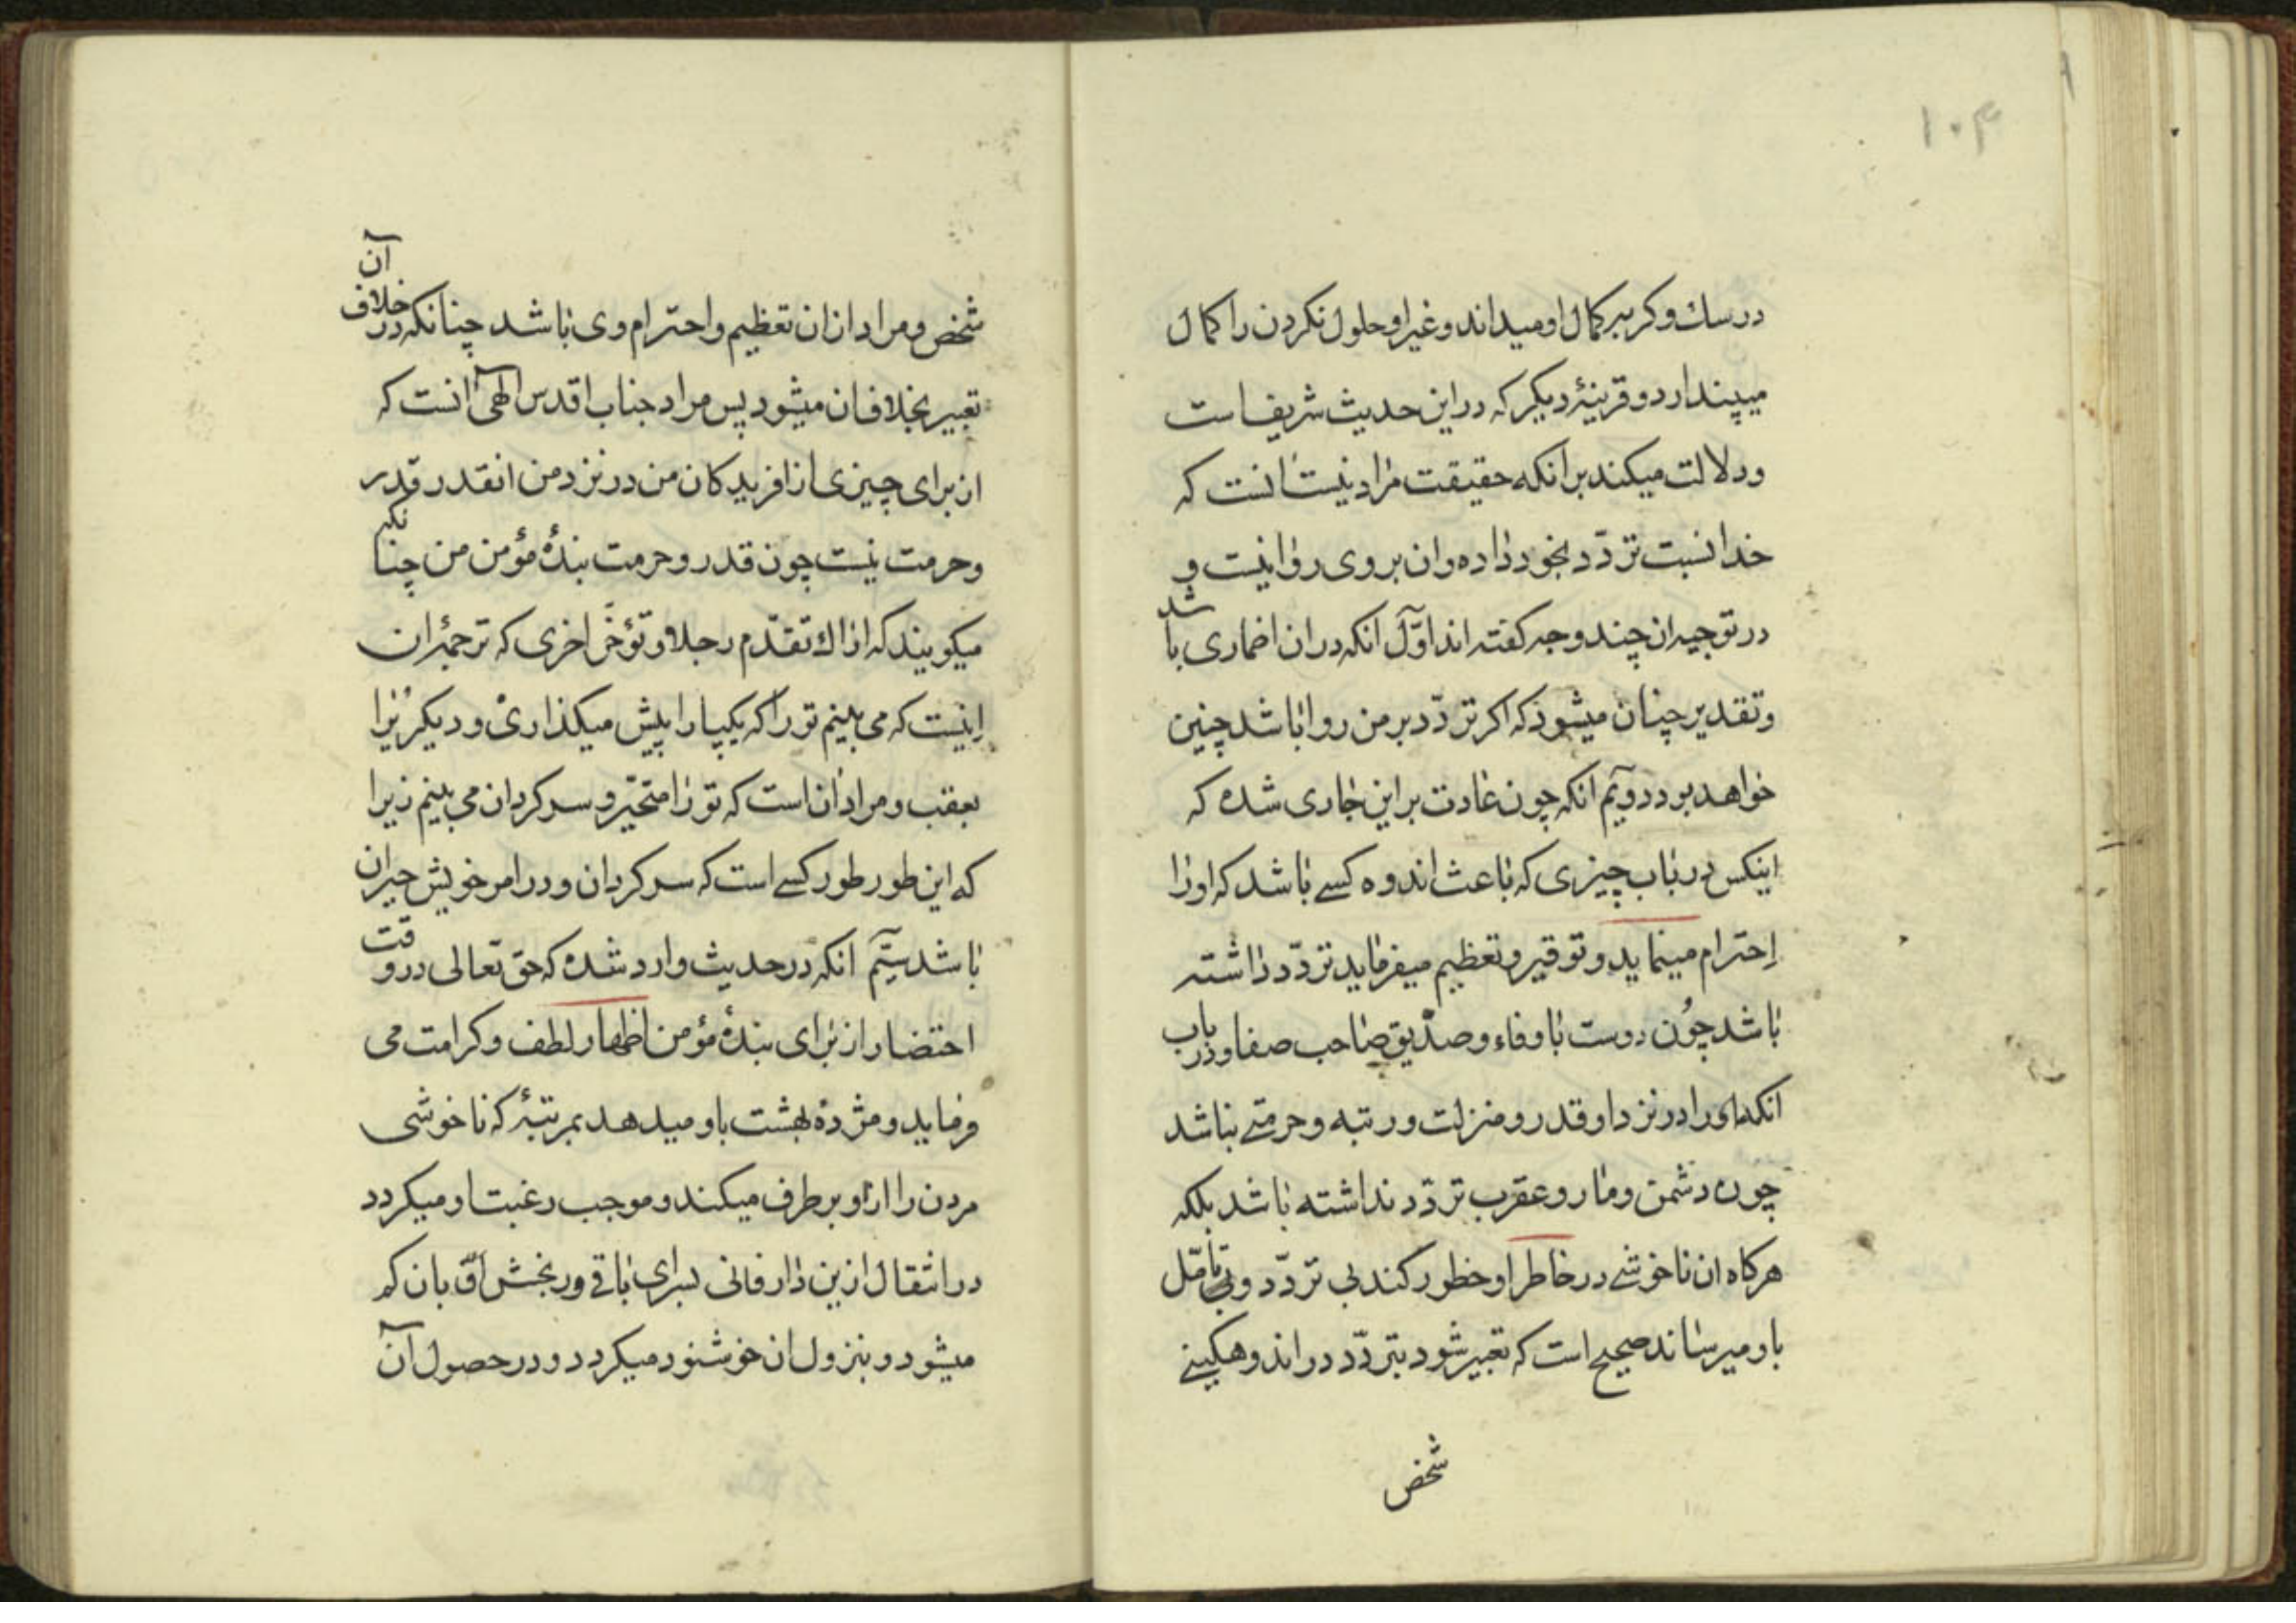 ۱۰۴
در سك و كربه كمال او ميداند و غير او حلول نكردن را كمال
ميپندارد و قرينهٔ ديكر كه در اين حديث شريف است
و دلالت ميكند بر انكه حقيقت مراد نيست انست كه
خدا نسبت تردّد بخود داده و ان بر وى روا نيست و
در توجيه ان چند وجه كفته اند اوّل انكه در ان اضمارى باشد
و تقدير چنان ميشود كه اكر تردّد بر من روا باشد چنين
خواهد بود دويّم انكه چون عادت بر اين جارى شده كه
اينكس در باب چيزى كه باعث اندوه كسے باشد كه او را
احترام مينمايد و توقير و تعظيم ميفرمايد تردّد داشته
باشد چون دوست با وفاء و صدّيق صاحب صفا و در باب
انكه او را در نزد او قدر و منزلت و رتبه و حرمتے نباشد
چون دشمن و مار و عقرب تردّد نداشته باشد بلكه
هركاه ان ناخوشے در خاطر او خطور كند بى تردّد و بى تأمّل
باو ميرساند صحيح است كه تعبير شود بتردّد در اندوهكينے
شخص
شخص و مراد ازان تعظيم و احترام وى باشد چنانكه در خلاف آن
تعبير بخلاف ان ميشود پس مراد جناب اقدس الهى آنست كه
از براى چيزى از افريدكان من در نزد من انقدر قدر
و حرمت نيست چون قدر و حرمت بندهٔ مؤمن من چنانكه
ميكويند كه اراك تقدّم رجلا و تؤخّر اخرى كه ترجمهٔ ان
اينست كه مى بينم تو را كه يكپا را پيش ميكذارى و ديكر يرا
بعقب و مراد ان است كه تو را متحيّر و سركردان مى بينم زيرا
كه اين طور طور كسے است كه سركردان و در امر خويش حيران
باشد سيّم انكه در حديث وارد شده كه حق تعالى در وقت
احتضار از براى بندهٔ مؤمن اظهار لطف و كرامت مى
فرمايد و مژدهٔ بهشت باو ميدهد بمرتبهٔ كه ناخوشى
مردن را از او بر طرف ميكند و موجب رغبت او ميكردد
در انتقال ازين دار فانى بسراى باقے و رنجش آن بان كم
ميشود و بنزول ان خوشنود ميكردد و در حصول آن